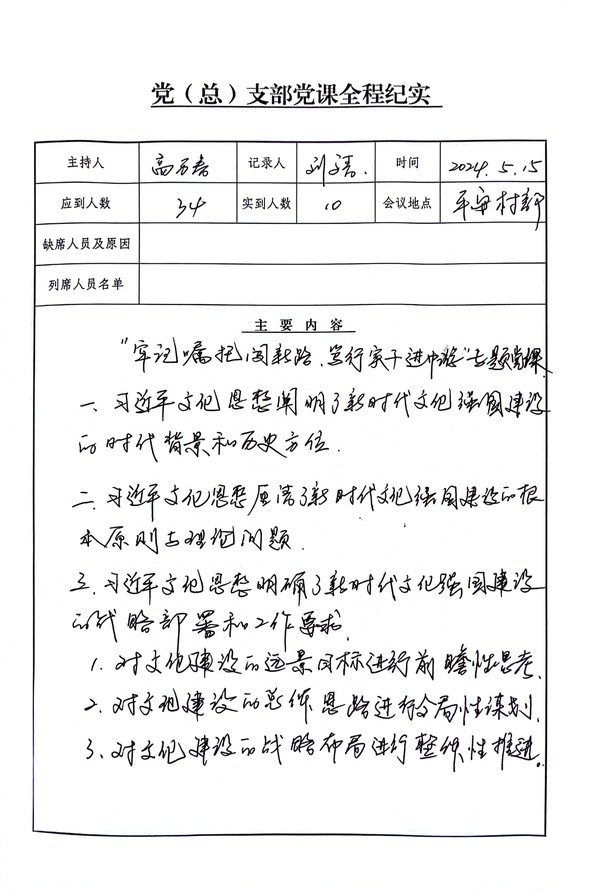 党（总）支部党课全程纪实
主持人 高万春 记录人 刘 时间 2024.5.15
应到人数 34 实到人数 10 会议地点 平安村
缺席人员及原因
列席人员名单
主要内容
"牢记嘱托闯新路、笃行实干进中游"专题党课
一、习近平文化思想阐明了新时代文化强国建设
的时代背景和历史方位.
二、习近平文化思想厘清了新时代文化强国建设的根
本原则与理论问题.
三、习近平文化思想明确了新时代文化强国建设
的战略部署和工作要求.
1. 对文化建设的远景目标进行前瞻性思考.
2. 对文化建设的总体思路进行全局性谋划.
3. 对文化建设的战略布局进行整体性推进。